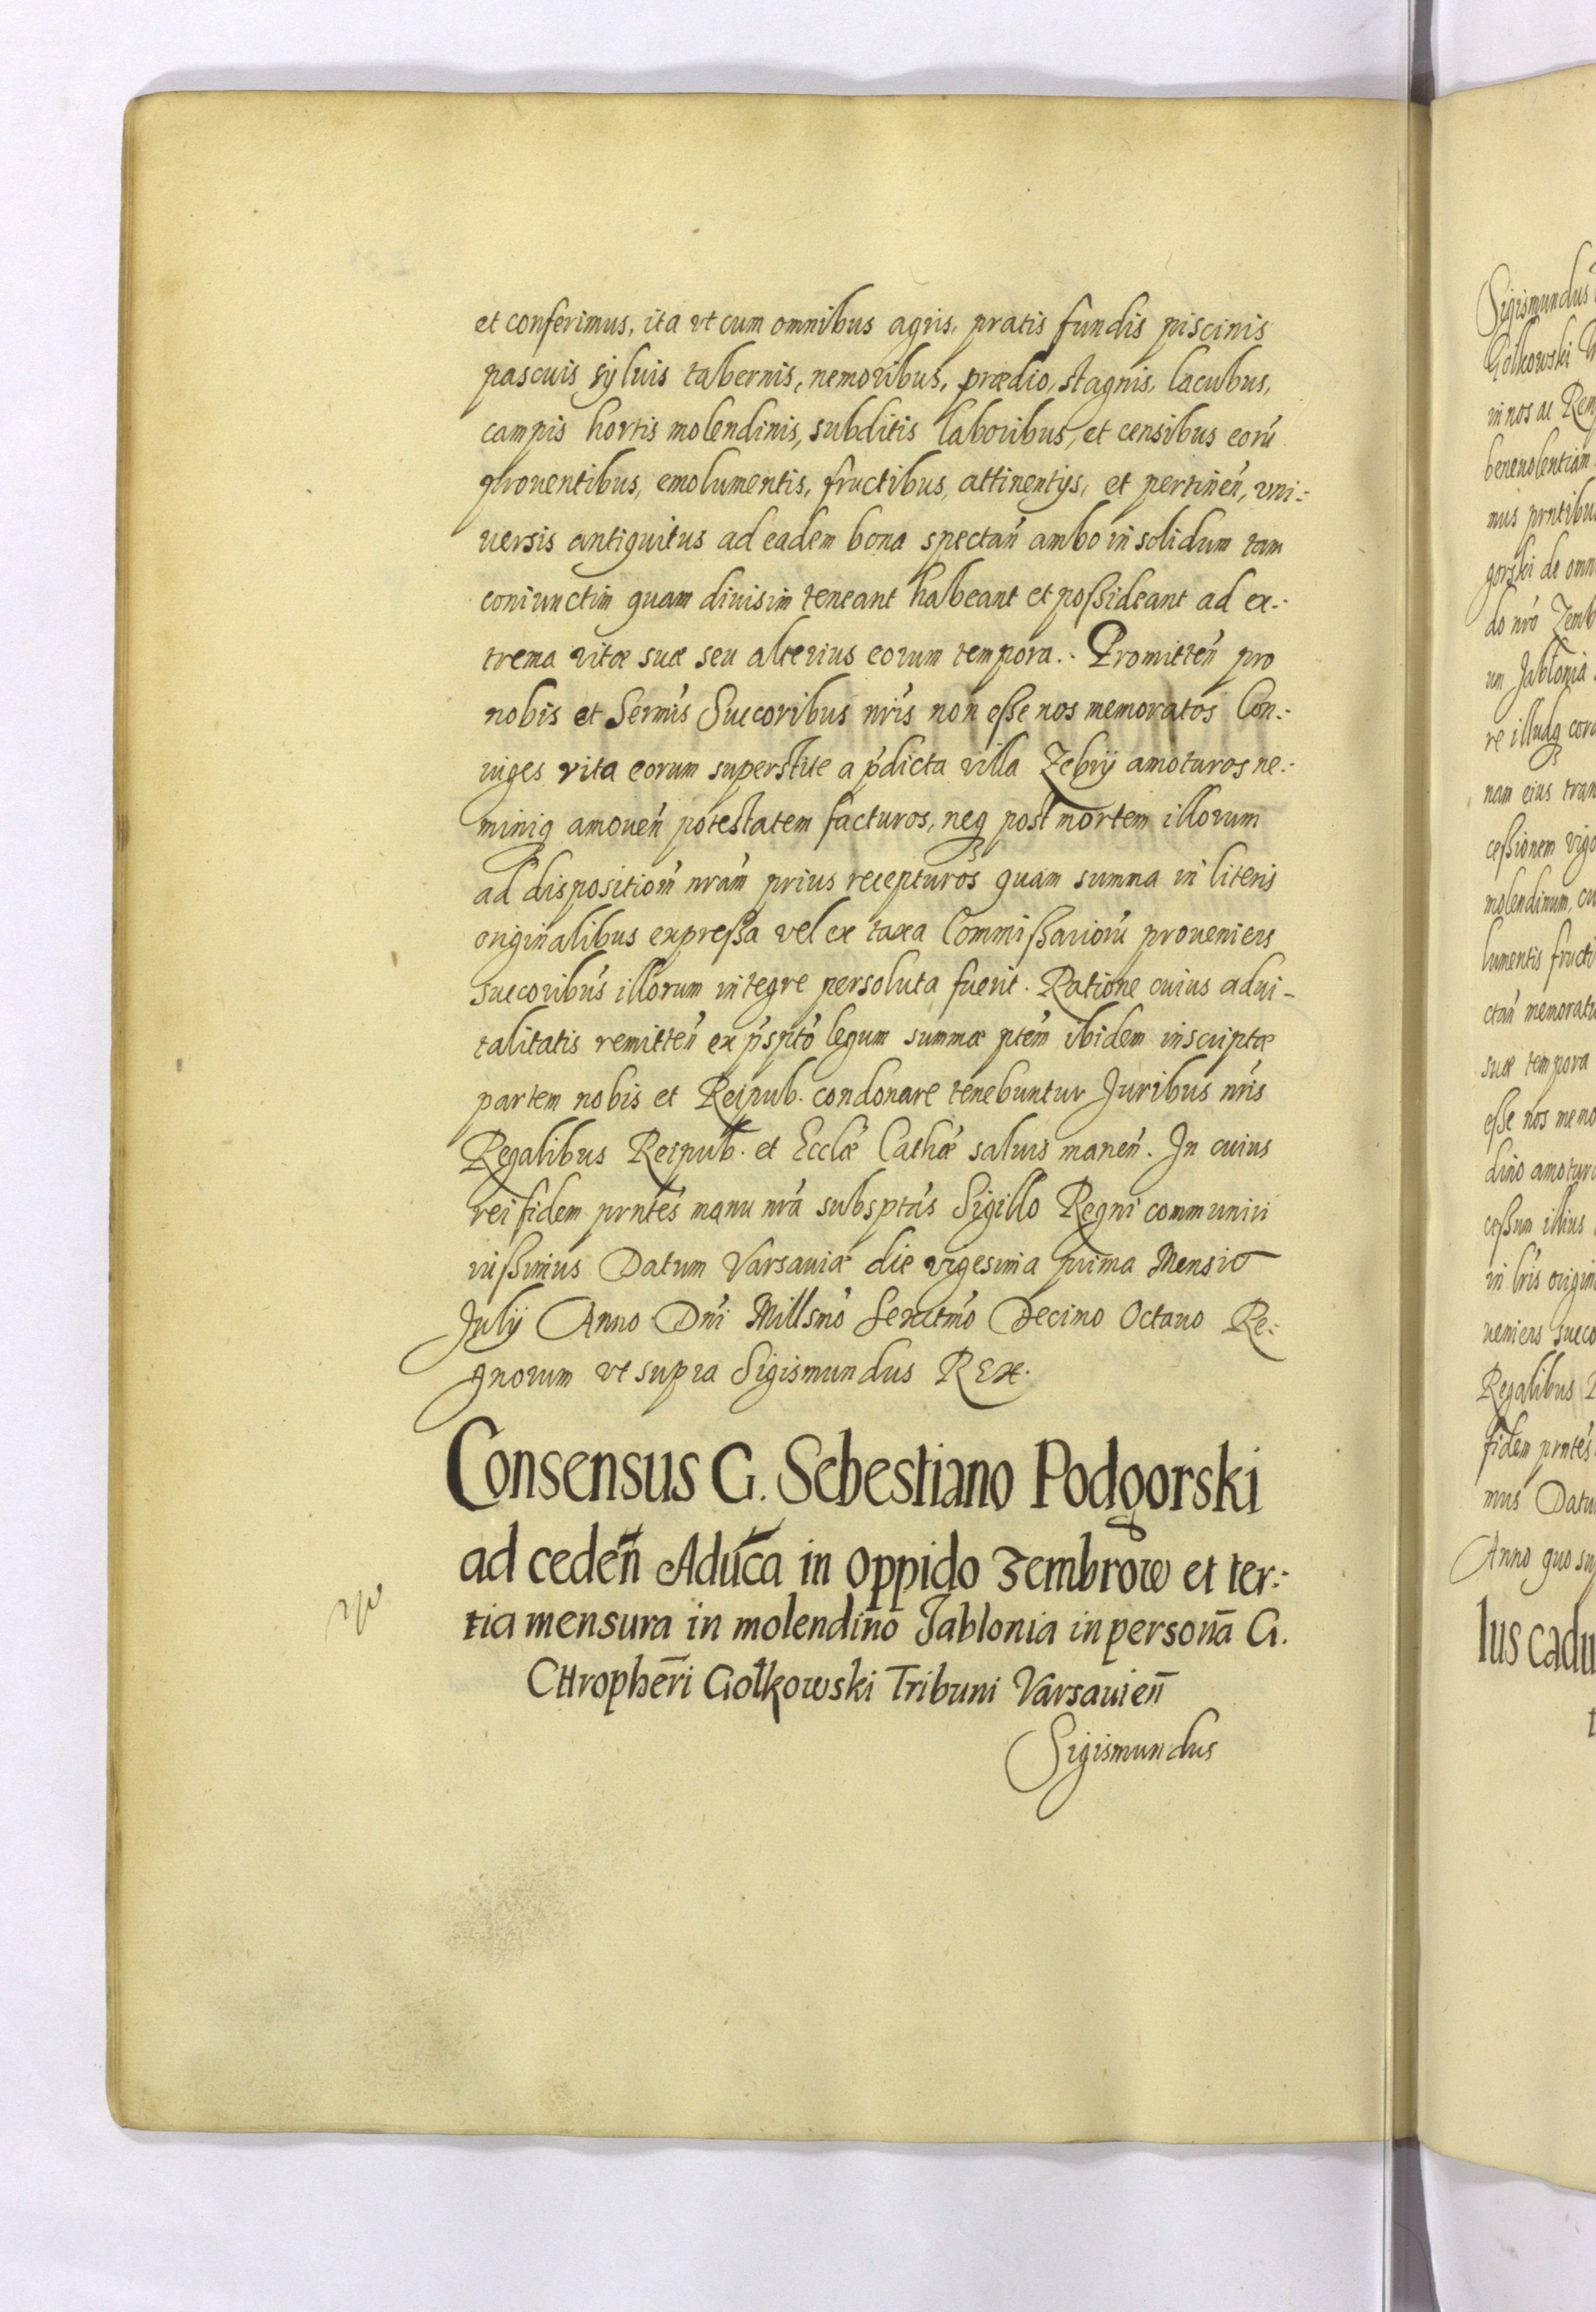 et conferimus, ita vt cum omnibus agris, pratis fundis piscinis
pascuis syluis tabernis, nemoribus, prædio, stagnis, lacubus,
campis hortis molendinis, subditis laboribus, et censibus eorũ
prouentibus, emolumentis, fructibus, attinentijs, et pertineń, vni-:
uersis antiquitus ad eadem bona spectań ambo in solidum tam
coniunctim quam diuisim teneant habeant et possideant ad ex-:
trema vitæ suæ seu alterius eorum tempora.: Promitteń pro
nobis et Sermis Succoribus nris non esse nos memoratos Con-:
iuges vita eorum superstite a pdicta villa Zebrij amoturos ne-:
miniq amoueń potestatem facturos, neq post mortem illorum
ad disposition nram prius recepturos quam summa in literis
originalibus expressa vel ex taxa Commissariorũ proueniens
succoribus illorum integre persoluta fuerit. Ratione cuius adui-
talitatis remitteń ex pspto legum summæ ptem ibidem inscriptæ
partem nobis et Reipub. condonare tenebuntur Juribus nris
Regalibus Reipub. et Ecclæ Cathæ saluis maneń. In cuius
rei fidem prntes manu nra subsptas Sigillo Regni communiri
iussimus Datum Varsauiæ die vigesima prima Mensis
Julij Anno Dni Millsmo Sexctmo Decimo Octauo Re-:
gnorum vt supra Sigismundus REX.
Consensus G. Sebestiano Podgorski
ad cedeñ Aduca in Oppido Zembrow et ter-:
tia mensura in molendino Jablonia in personã G.
CHropheri Gołkowski Tribuni Varsauieñ
Sigismundus
Sigismundus
Gołkowski
in nos ac Rem
beneuolentiam
mus prntibus
gorski de omn
do nro Zemb
um Jablonia
re illudq coru
nam eius tran
cessionem vigo
molendinum, cu
lumentis fructi
ctań memoratu
suæ tempora
esse nos memo
dino amotur
cessum illius
in lris origin
ueniens succo
Regalibus R
fidem prntes
mus Datu
Anno quo su
Ius cadu